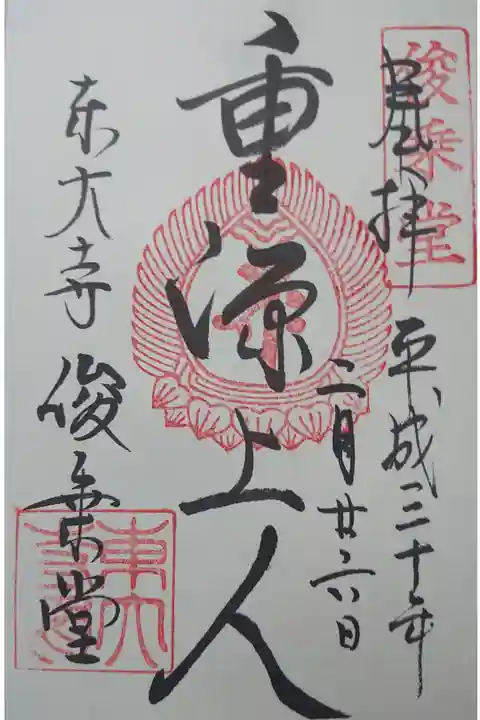 俊乗堂
奉拝 平成三十年
二月廿六日
重源上人
東大寺 俊乗堂
東大